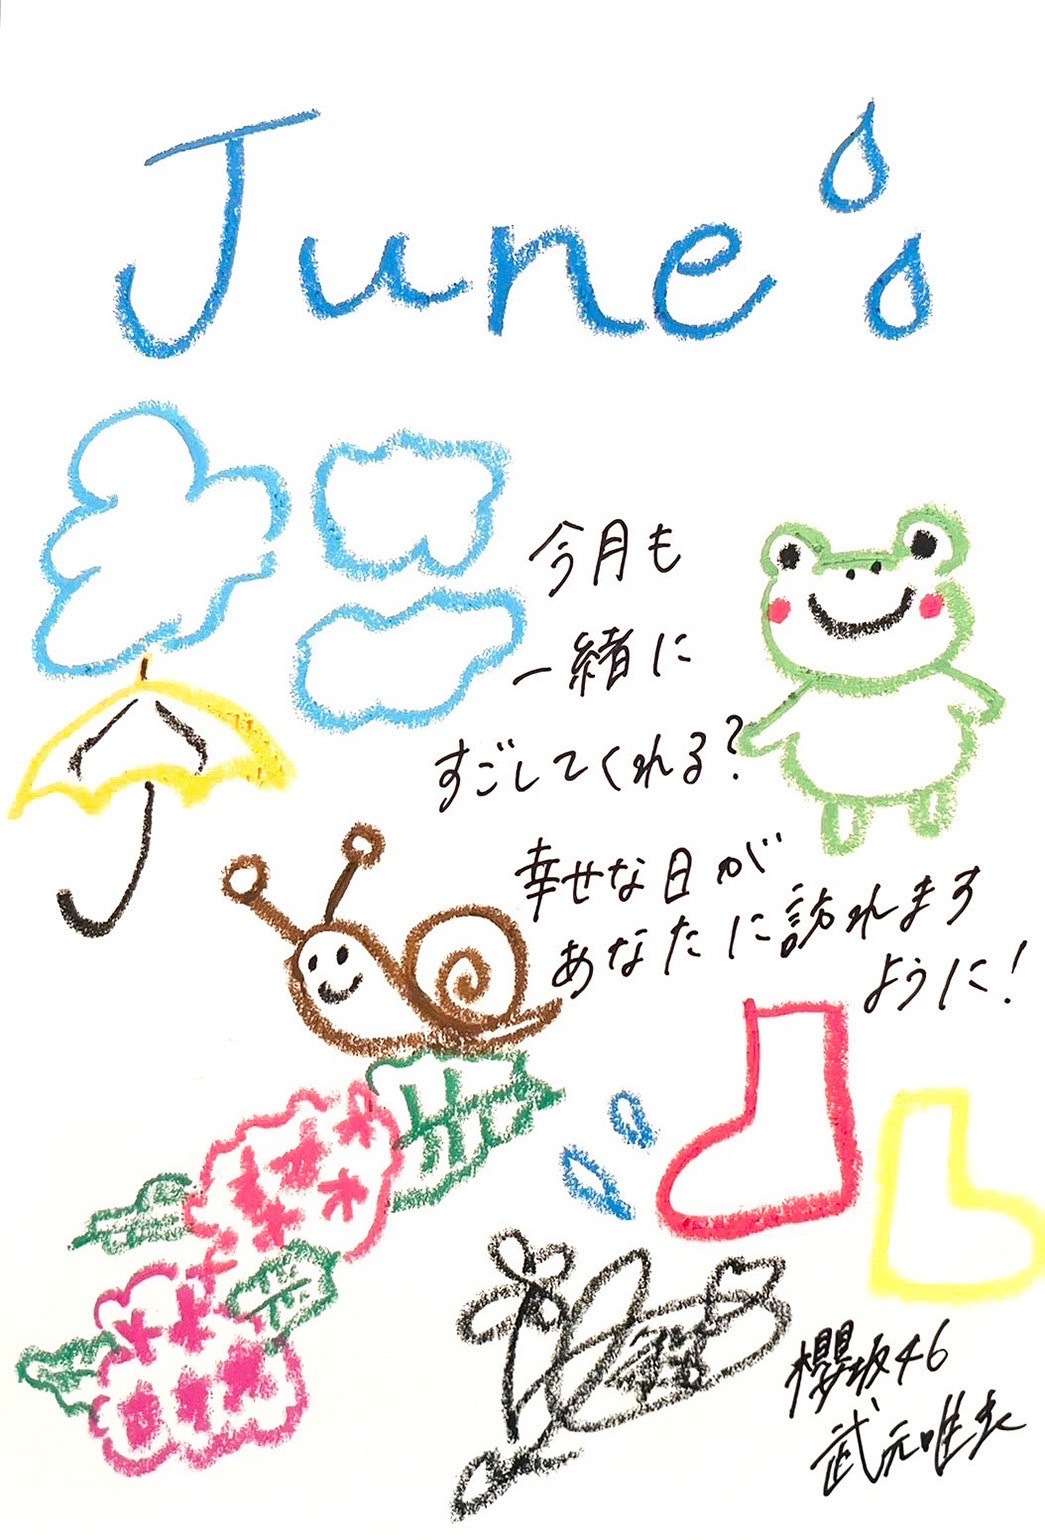 June's
今月も
一緒に
すごしてくれる?
幸せな日が
あなたに訪れます
ように!
櫻坂46
武元唯衣